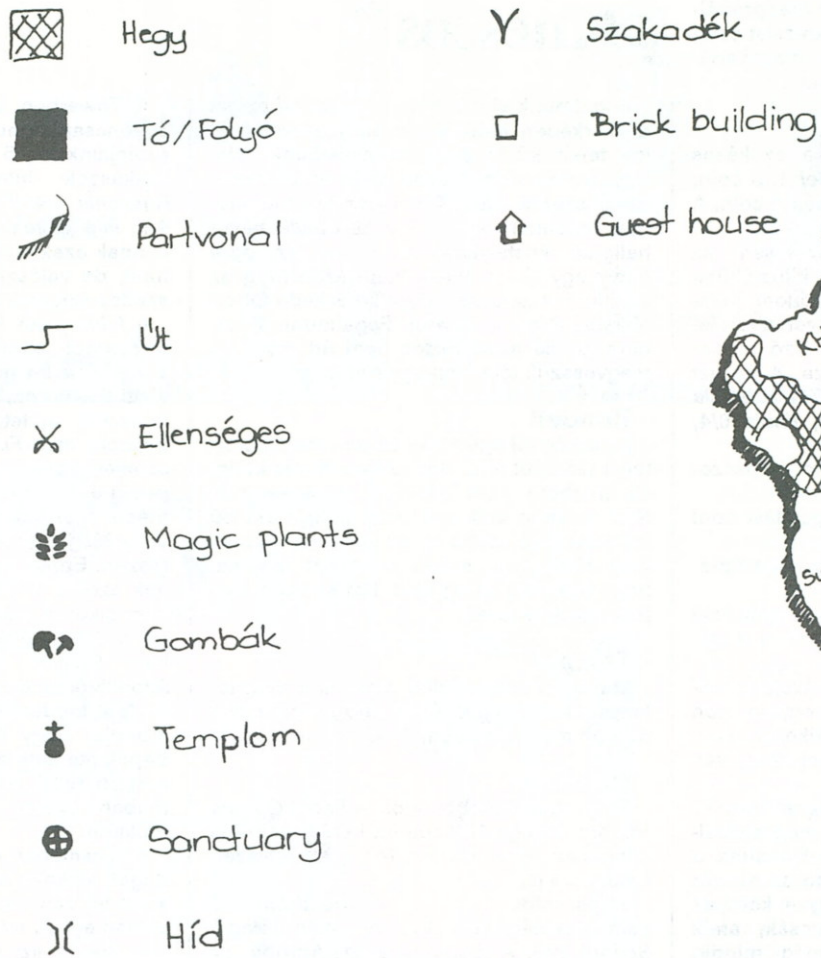 Hegy
Tó/Folyó
Partvonal
Út
Ellenséges
Magic plants
Gombák
Templom
Sanctuary
Híd
Szakadék
Brick building
Guest house